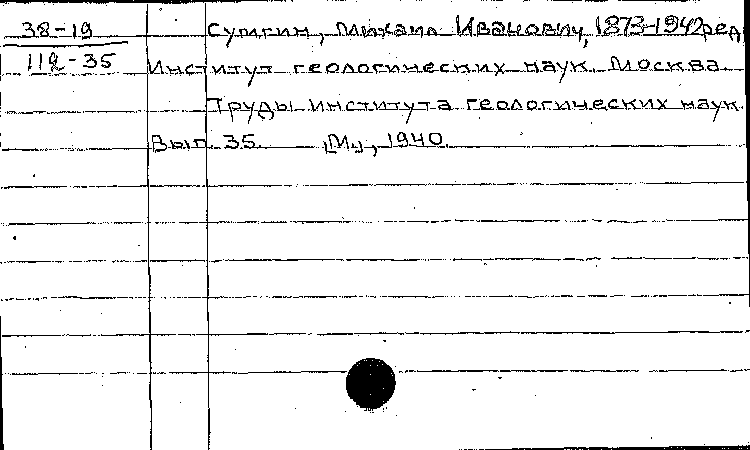 38-19
Сумгин, Михаил Иванович, 1873-1942 ред.
112-35
Институт геологических наук. Москва.
Труды института геологических наук.
Вып. 35. [М], 1940.